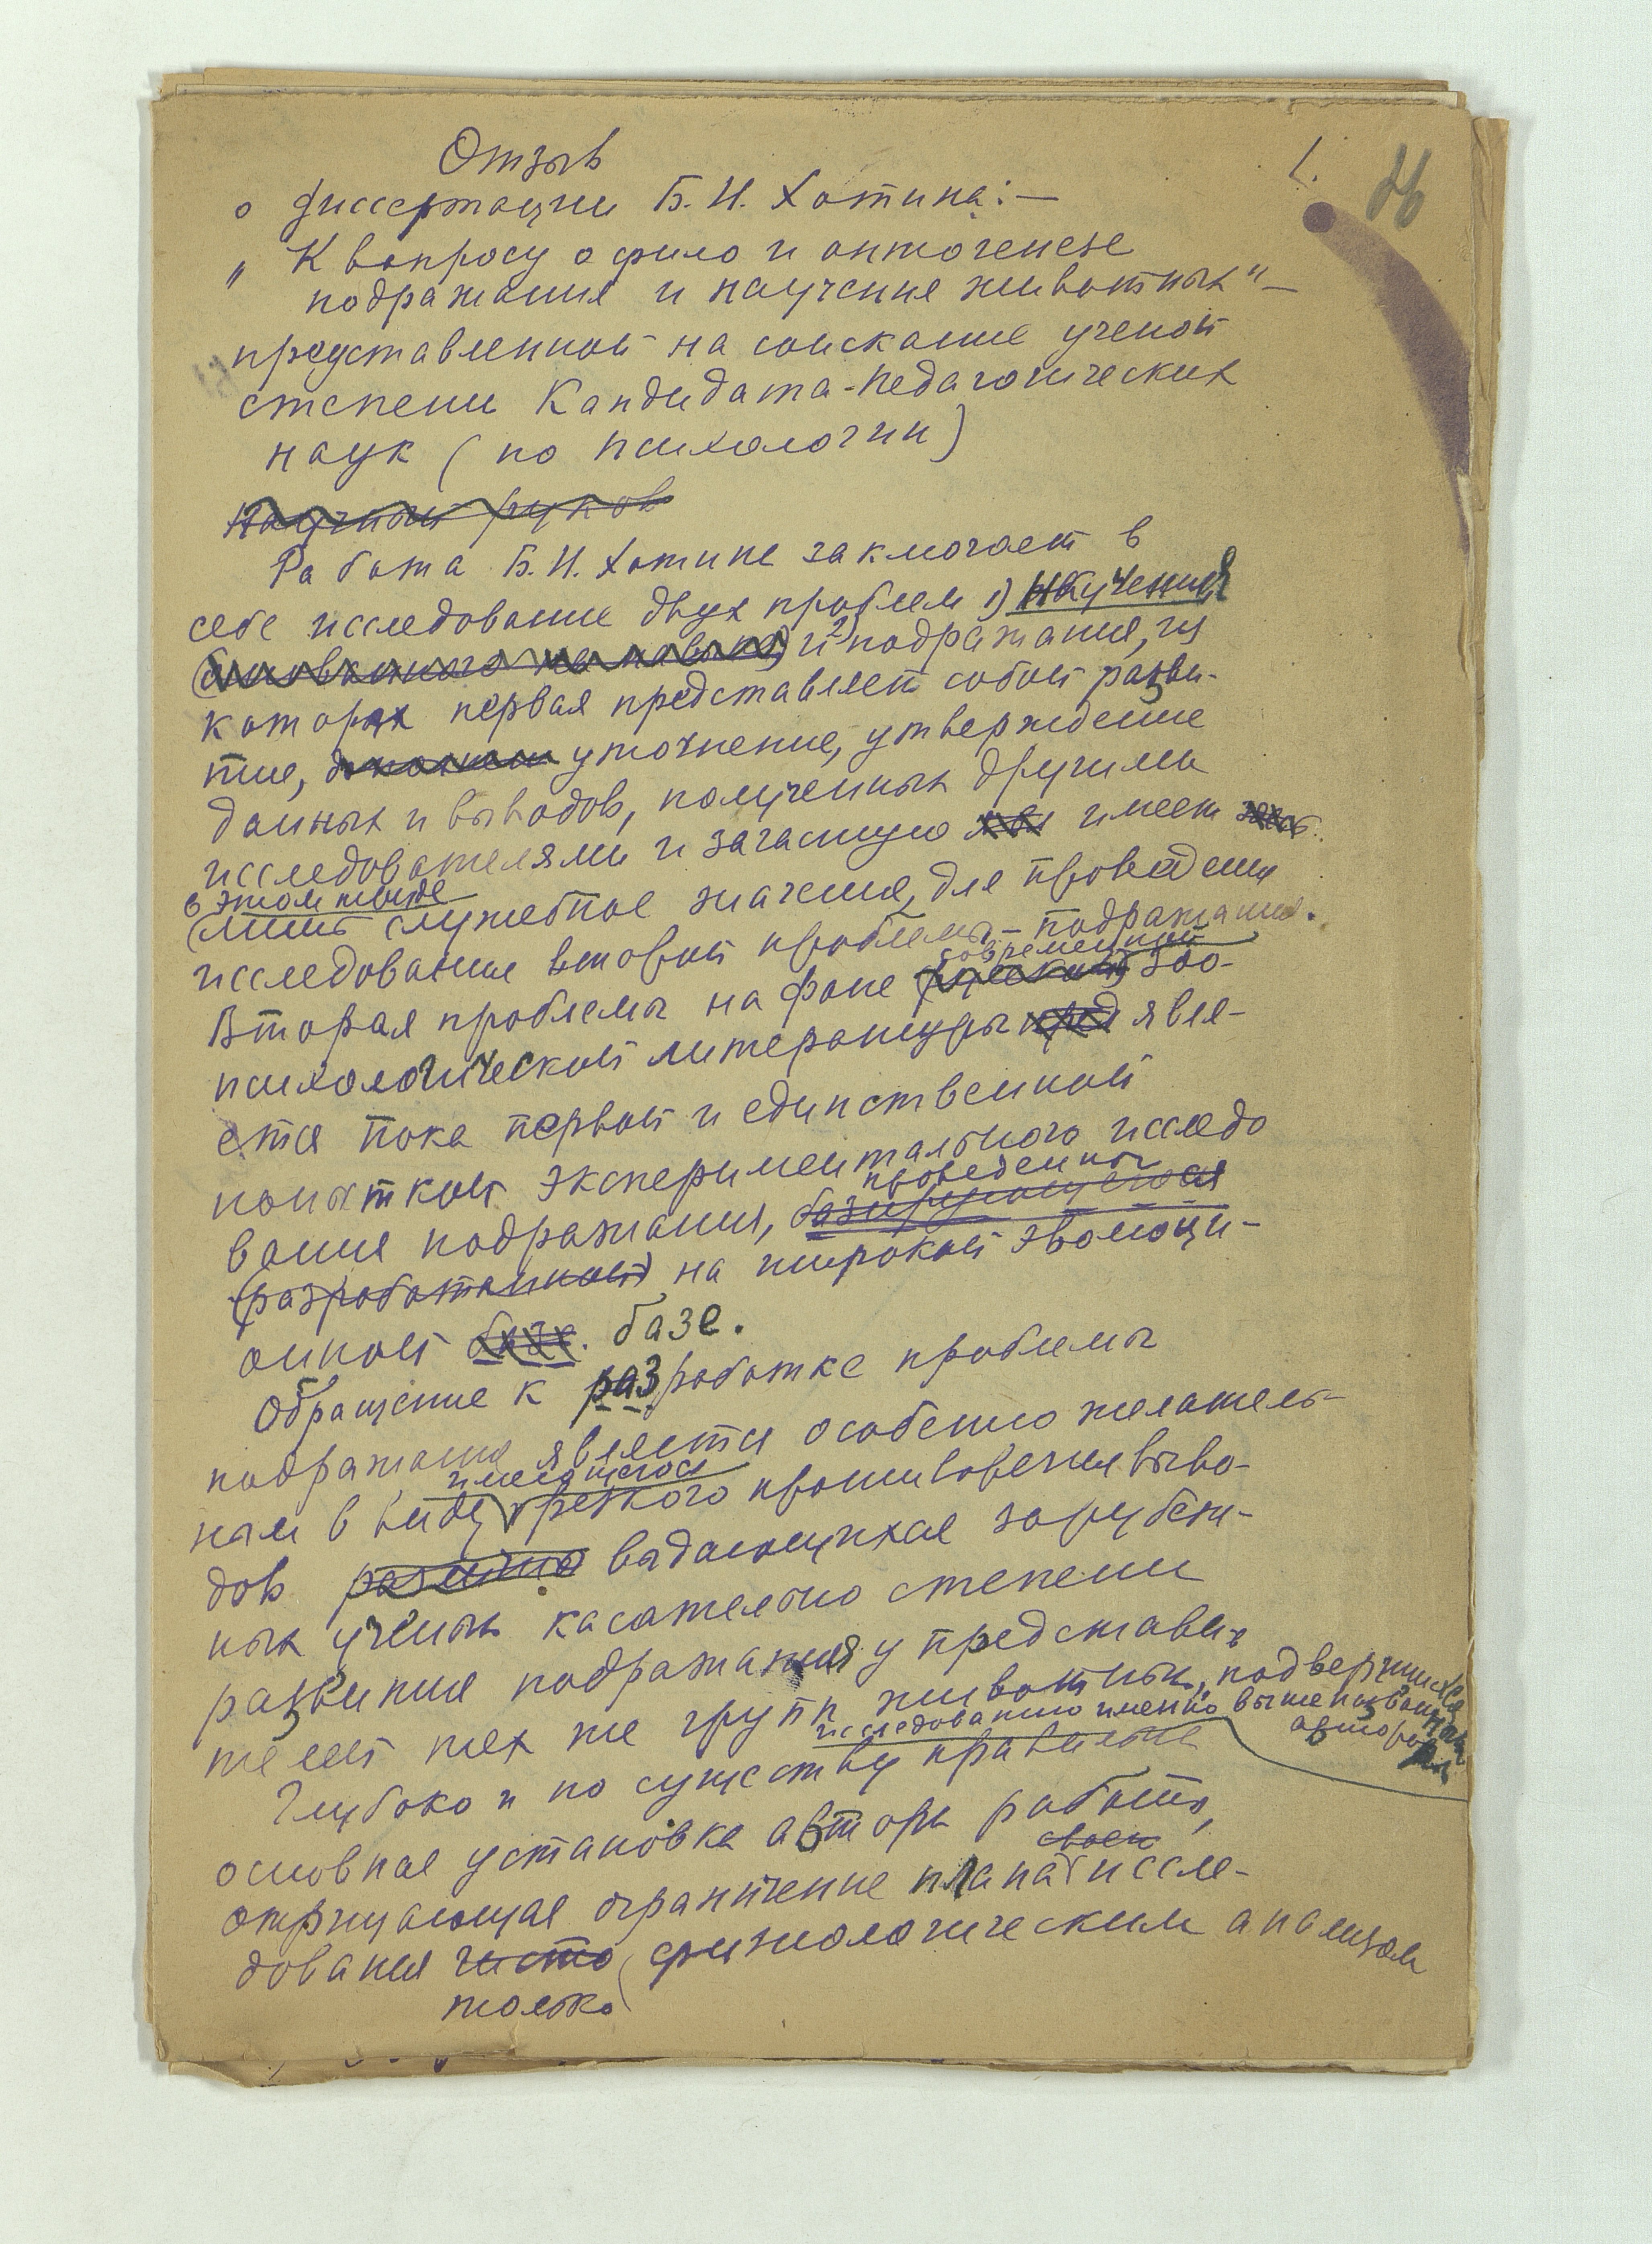 1.
Отзыв
о диссертации Б. И. Хотина: —
„К вопросу о фило и онтогенезе
подражания и научения животных" —
представленной на соискание ученой
степени Кандидата-Педагогических
наук (по психологии)
Научный руков
Работа Б. И. Хотина заключает в
себе исследование двух проблем 1) научения
и 2) подражания, из
которых первая представляет собой разви-
тие, уточнение, утверждение
данных и выводов, полученных другими
исследователями и зачастую имеет
в этом труде
(лишь служебное значение, для проведения
исследования второй проблемы – подражания.
современной
Вторая проблемы на фоне зоо-
психологической литературы явля-
ется пока первой и единственной
попыткой экспериментального исследо
проведенного
вания подражания, базирующегося
(разработанной) на широкой эволюци-
онной базе.
Обращение к разработке проблемы
подражания является особенно желатель-
имеющегося
ным в виду резкого противоречия выво-
дов выдающихся зарубеж-
ных ученых касательно степени
развития подражания у представи-
телей тех же групп животных, подвергшихся
исследованию именно вышеназванными
авторами
Глубоко и по существу правильна
основная установка автора работы,
своего
отрицающая ограничение плана иссле-
дования чисто физиологическим анализом
только